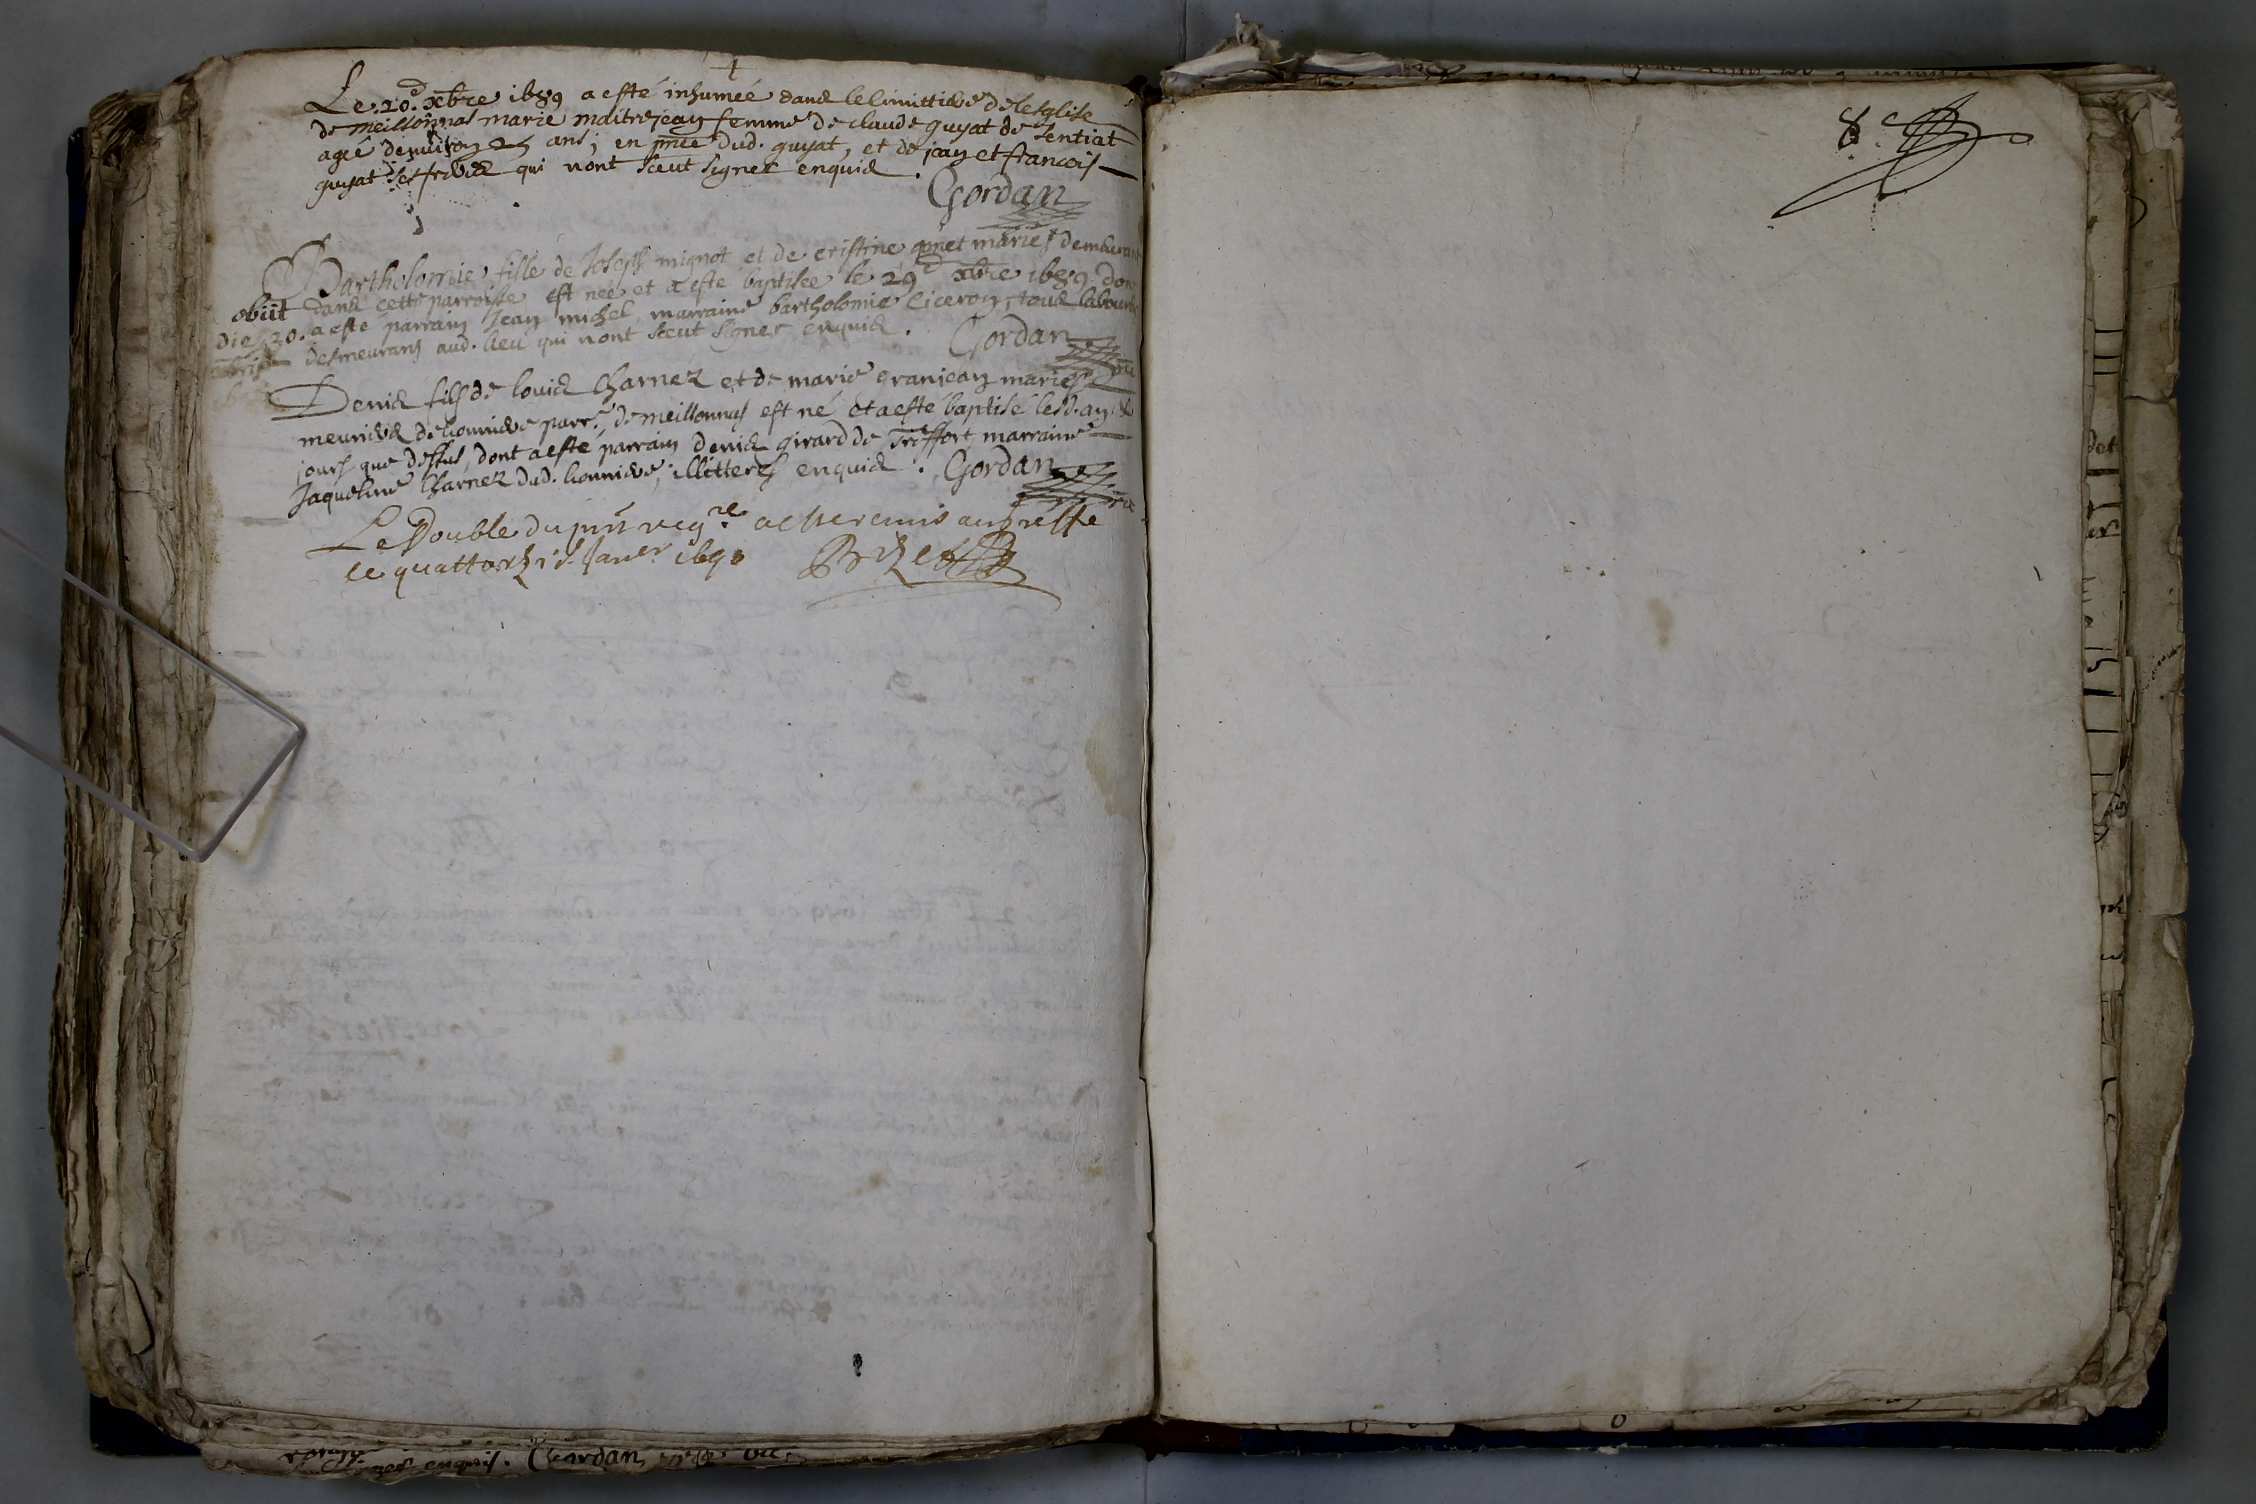 Le 20e xbre 1689 a esté inhumée dans le cimittiere de lesglise
de meillonnas marie maitrejean femme de claude guyat de Sentiat
agée denviron 25 ans, en pnce dud. guyat, et de jean et francois
guyat ses freres qui nont sceut signer enquis. Gordan
Bartholomie fille de Joseph mignot et de cristine mariés demeurant
dans cette parroisse est née et a esté baptisée le 29e xbre 1689 dont
obiit
a esté parrain Jean michel, marraine bartholomie Ciceron, tous laboureurs
die 30.
desmeurans aud. lieu qui nont sceut signer enquis. Gordan
Denis fils de louis Charnez et de marie granjean mariés
meuniers de parr. de meillonnas est né et a esté baptisé lesd. an &
jours que dessus, dont a esté parrain denis girard de Treffort marraine
Jaqueline Charnez dud. illitterés enquis. Gordan
Le Double du pnt regre a esté remis au greffe
le quattorzie Janer 1690
8e
enquis. Gordan